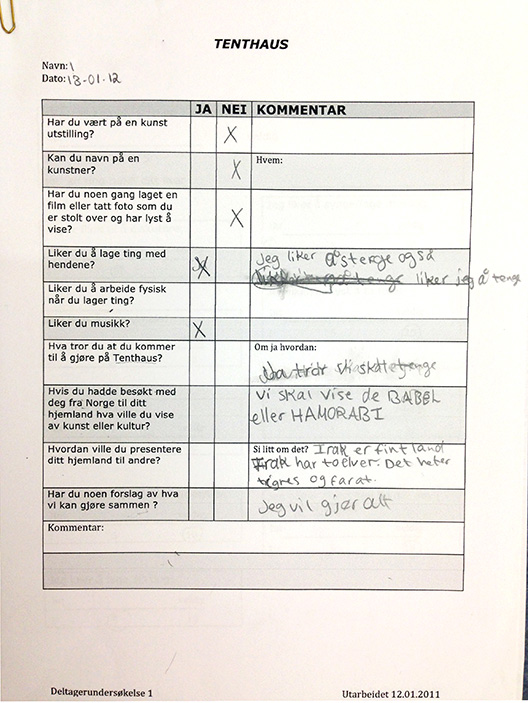 TENTHAUS
Navn:
Dato: 13-01-12
JA NEI KOMMENTAR
Har du vært på en kunst
utstilling?
X
Kan du navn på en
kunstner?
X
Hvem:
Har du noen gang laget en
film eller tatt foto som du
er stolt over og har lyst å
vise?
X
Liker du å lage ting med
hendene?
X
Jeg liker også
liker jeg å tenge
Liker du å arbeide fysisk
når du lager ting?
Liker du musikk?
X
Hva tror du at du kommer
til å gjøre på Tenthaus?
Om ja hvordan:
Hvis du hadde besøkt med
deg fra Norge til ditt
hjemland hva ville du vise
av kunst eller kultur?
Vi skal vise de BABEL
eller HAMORABI
Hvordan ville du presentere
ditt hjemland til andre?
Si litt om det? Irak er fint land
Irak har to elver. Det heter
tigres og farat.
Har du noen forslag av hva
vi kan gjøre sammen ?
Jeg vil gjør alt
Kommentar:
Deltagerundersøkelse 1
Utarbeidet 12.01.2011